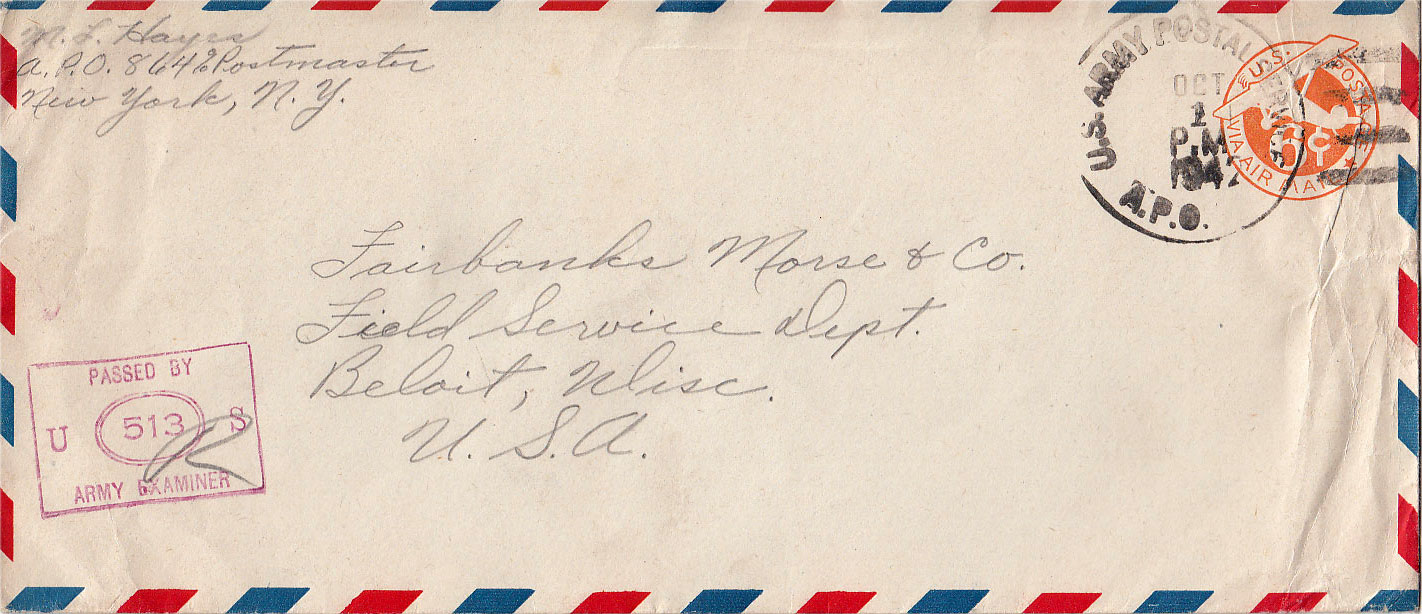 M. L. Hayes
A. P. O. 864 % Postmaster
New York, N. Y.
U.S. ARMY POSTAL SERVICE
OCT
1
P.M
1942
A.P.O.
U.S. POSTAGE
6¢
VIA AIR MAIL
Fairbanks Morse & Co.
Field Service Dept.
Beloit, Wisc.
U. S. A.
PASSED BY
U 513 S
ARMY EXAMINER